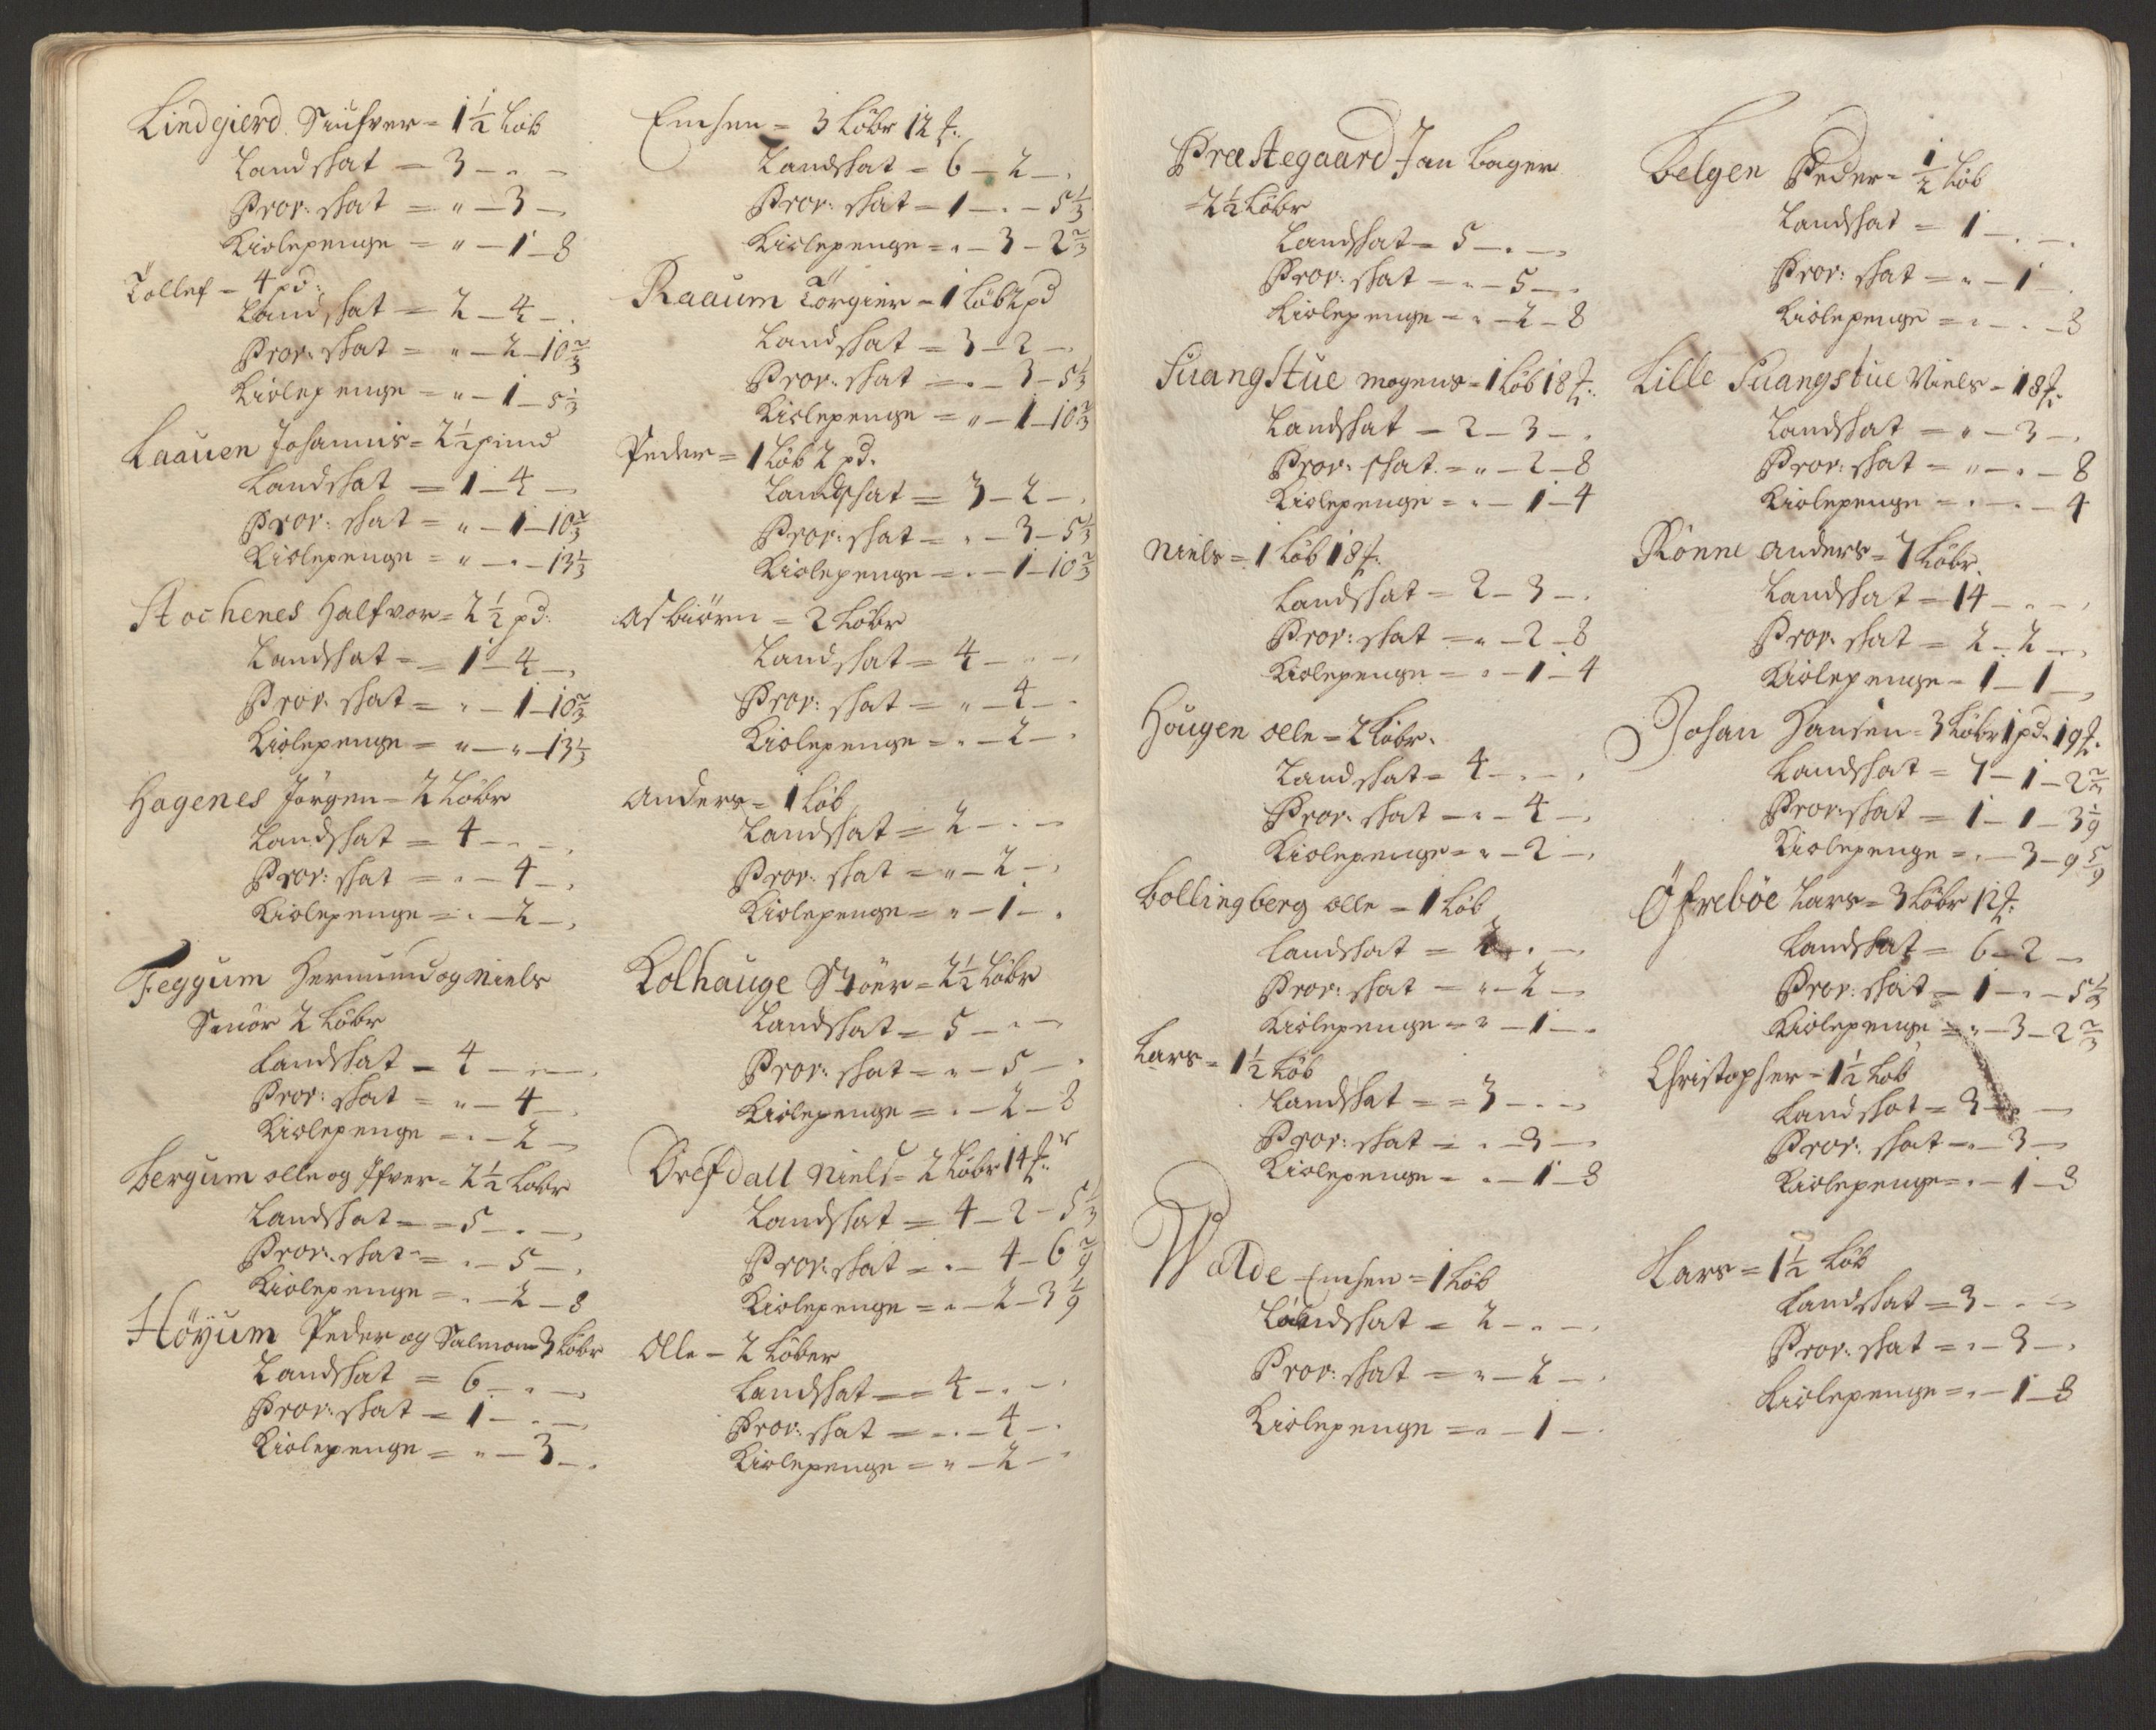 Lindgierd Siufver = 1½ Løb
Landskat = 3 - „ -
Prov: skat = „ - 3 -
Kiolepenge = „ - 1 - 8
Tollef - 4 pd:
Landskat = 2 - 4 - .
Prov: skat = „ - 2 - 10⅔
Kiolepenge = „ - 1 - 5⅓
Laauen Johannis = 2½ pund
Landskat = 1 - 4 -
Prov: skat = „ - 1 - 10⅔
Kiolepenge = „ - . - 13⅓
Stochenes Halfvor = 2½ pd.
Landskat = 1 - 4 -
Prov. skat = „ - 1 - 10⅔
Kiolepenge = „ - „ - 13⅓
Hagenes Jørgen - 2 Løbr
Landskat = 4 - . - .
Prov: skat = . - 4 - .
Kiolepenge = . - 2 - .
Feggum Hermund og Niels
2 Løbr
Landskat = 4 - „ - .
Prov: skat = „ - 4 - .
Kiolepenge = . - 2 -
Bergum olle og Ifver = 2½ Løbr
Landskat = 5 - . - .
Prov. skat = . - 5 - .
Kiolepenge = . - 2 - 8
Höyum Peder og Salmon 3 Løbr
Landskat = 6 - . -
Prov: skat = 1 - . - .
Kiolepenge = „ - 3 - .
Emsen = 3 Løbr 12 ℔.
Landskat = 6 - 2 - .
Prov: skat = 1 - . - 5⅓
Kiolepenge = . - 3 - 2⅔
Raaum Törgier - 1 Løb 2 pd
Landskat = 3 - 2 - .
Prov. skat = . - 3 - 5⅓
Kiolepenge = „ - 1 - 10⅔
Peder = 1 Løb 2 pd.
Landskat = 3 - 2 - .
Prov: skat = . - 3 - 5⅓
Kiolepenge = . - 1 - 10⅔
Asbiörn = 2 Løbr
Landskat = 4 - . - .
Prov: skat = „ - 4 - .
Kiolepenge = . - 2 - .
Anders = 1 Løb
Landskat = 2 - . -
Prov: skat = „ - 2 - .
Kiolepenge = „ - 1 - .
Kolhauge Siöer = 2½ Løbr
Landskat = 5 - . -
Prov: skat = „ - 5 - .
Kiolepenge = . - 2 - 8
Orefdall Niels = 2 Løbr 14 ℔r
Landskat = 4 - 2 - 5⅓
Prov: skat = . - 4 - 6 2/9
Kiolepenge = . - 2 - 3 1/9
Olle - 2 Løber
Landskat = 4 - . - .
Prov: skat = . - 4 - .
Kiolepenge = „ - 2 - .
Præstegaard Jan bager
= 2½ Løbr
Landskat = 5 - . - .
Prov: skat = „ - 5 - .
Kiolepenge = . - 2 - 8
Suangstue mogens = 1 Løb 18 ℔.
Landskat = 2 - 3 - .
Prov: skat = „ - 2 - 8
Kiolepenge = . - 1 - 4
Niels = 1 Løb 18 ℔.
Landskat = 2 - 3 - .
Prov: skat = „ - 2 - 8
Kiolepenge = . - 1 - 4
Hougen olle = 2 Løbr.
Landskat = 4 - . - .
Prov: skat = . - 4 - .
Kiolepenge = „ - 2 - .
Bollingberg olle = 1 Løb
Landskat = 2 - . -
Prov: skat = „ - 2 -
Kiolepenge = „ - 1 - .
Lars = 1½ Løb
Landskat = 3 - . - .
Prov: skat = . - 3 -
Kiolepenge = . - 1 - 8
Walde Emsen = 1 Løb
Landskat = 2 - . - .
Prov: skat = „ - 2 - .
Kiolepenge = . - 1 - .
Belgen Peder = ½ Løb
Landskat = 1 - . - .
Prov: skat = „ - 1 - .
Kiolepenge = . - . - 8
Lille Suangstue Niels = 18 ℔.
Landskat = „ - 3 - .
Prov: skat = „ - . - 8
Kiolepenge = . - . - 4
Rönne anders = 7 Løbr.
Landskat = 14 - . - .
Prov: skat = 2 - 2 - .
Kiolepenge = 1 - 1 - .
Johan Hansen = 3 Løbr 1 pd. 19 ℔.
Landskat = 7 - 1 - 2⅔
Prov: skat = 1 - 1 - 3 1/9
Kiolepenge = . - 3 - 9 5/9
Öfreböe Lars = 3 Løbr 12 ℔.
Landskat = 6 - 2 -
Prov: skat = 1 - . - 5⅓
Kiolepenge = „ - 3 - 2⅔
Christopher = 1½ Løb
Landskat = 3 - . -
Prov: skat = . - 3 -
Kiolepenge = . - 1 - 8
Lars = 1½ Løb
Landskat = 3 - . - .
Prov: skat = . - 3 - .
Kiolepenge = . - 1 - 8